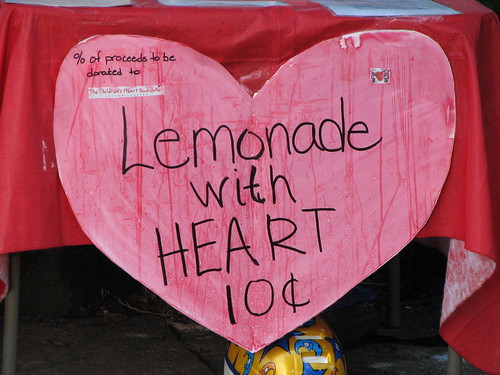 % of proceeds to be
donated to
The Children's Heart Foundation
Lemonade
with
HEART
10¢